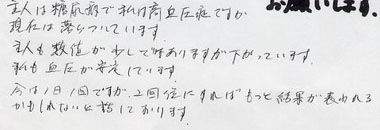 お願いします。
主人は糖尿病で私は高血圧症ですが
現在は落ちついています。
主人も数値が少しではありますが下がっています。
私も血圧が安定しています。
今は1日1回ですが、2回位にすればもっと結果が表われる
かもしれないと話しております。